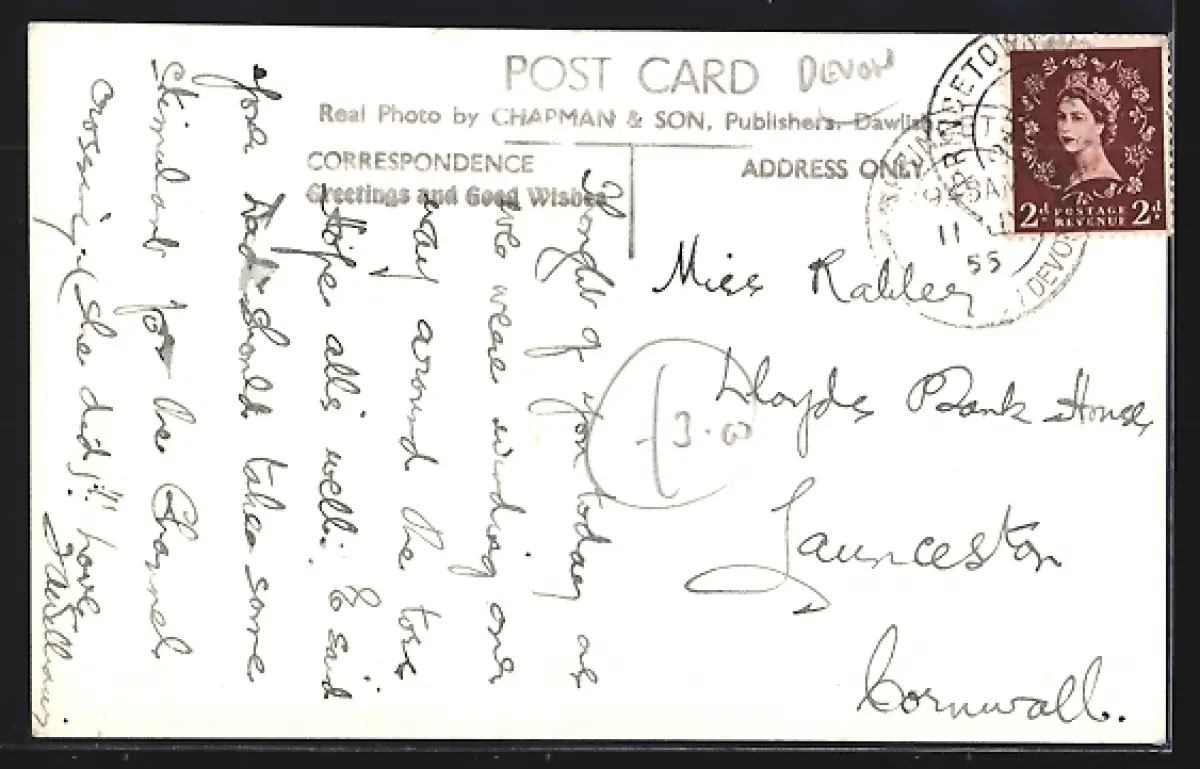 POST CARD DEVON
Real Photo by CHAPMAN & SON, Publishers, Dawlish
CORRESPONDENCE
ADDRESS ONLY
Greetings and Good Wishes
PRINCETOWN
DEVON
11
55
2d POSTAGE REVENUE 2d
Miss
Lloyds Bank House
Launceston
Cornwall.
3.00
Thought of you today as
we were winding our
way around the tors
Hope all's well. G said
you had should take some
stimulant for the Channel
crossing. (She did)!! Love